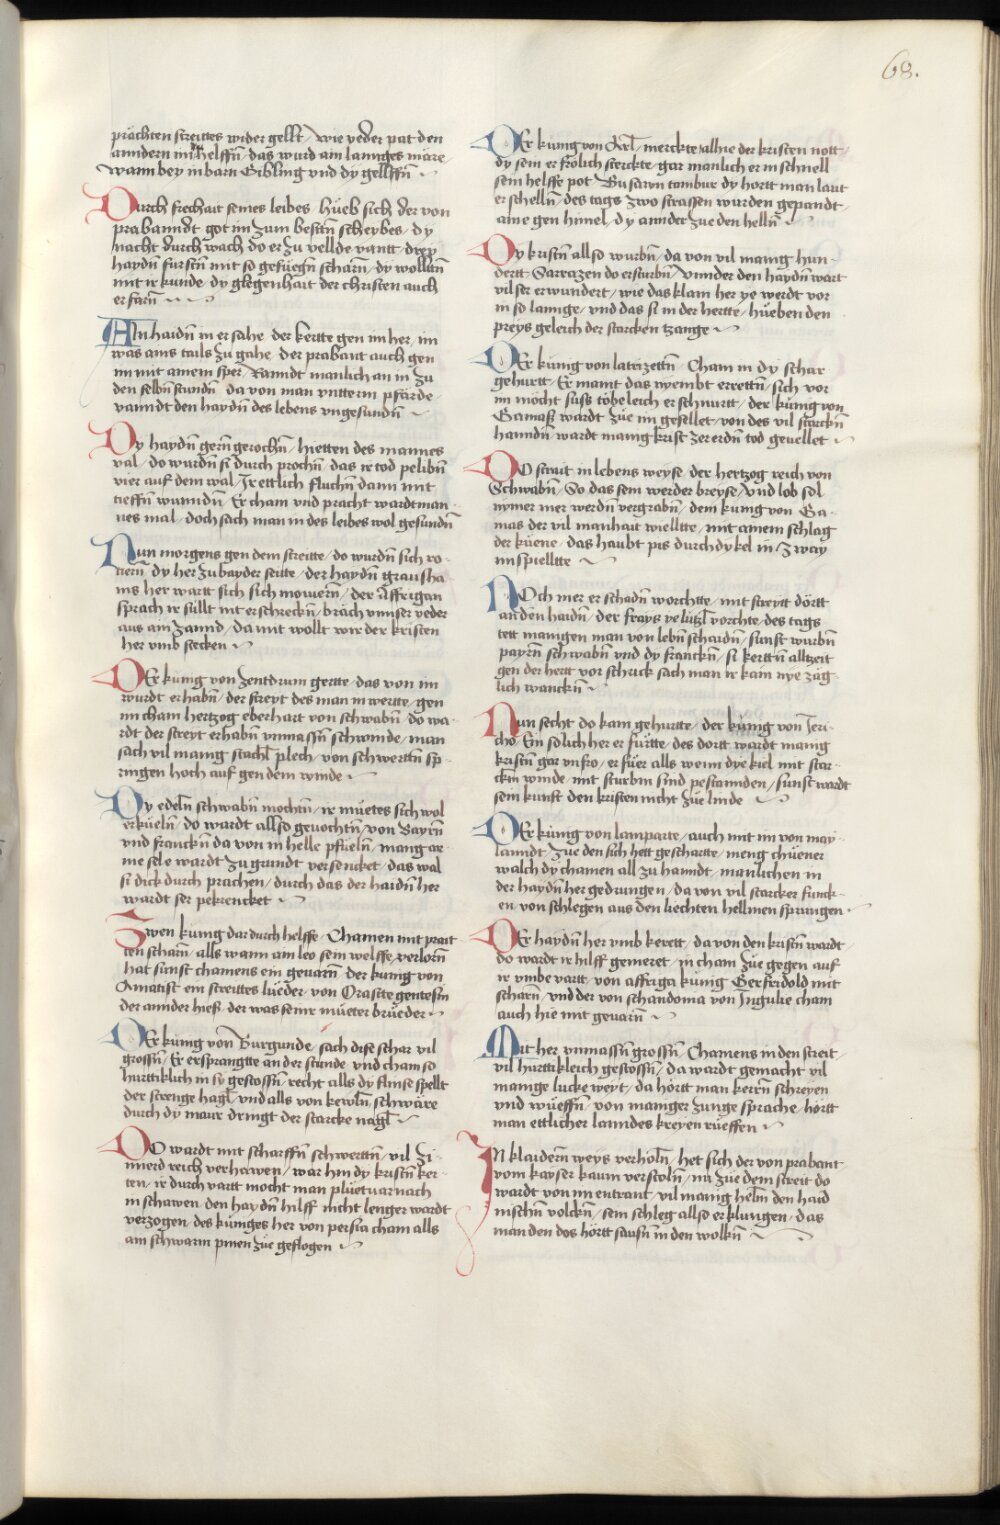 68.
prächten streittes wider gellt / wie yeder pat den
anndern im helffn̄ · das wurd ain lannges märe ·
wann bey in barn Gibling vnd dy gellffn̄ ·
Durch frechait seines leibes · hüeb sich der von
prabanndt got im zum bestn̄ scheybes · dy
nacht durch wach do er zu vellde vantt · drey
haydn̄ fürstn̄ mit so gefüegn̄ scharn̄ / dy wolltn̄
mit ir kunde · dy glegenhait der christen auch
erfarn̄
Ain haidn̄ in ersahe · der kertte gen im her / im
was ains tails zu gahe · der prabant auch gen
im mit ainem sper / Ranndt manlich an in zu
den selbn̄ stundn̄ · da von man vntterm pfärde ·
vanndt den haydn̄ des lebens vngesundn̄
Dy haydn̄ gern̄ gerochn̄ / hietten des mannes
val / do wurdn̄ si durch prochn̄ / das ir tod pelibn̄
vier auf dem wal / Ir ettlich fluchn̄ dann mit
tieffn̄ wunndn̄ / Er cham vnd pracht wardt man
nes mal / doch sach man in des leibes wol gesundn̄
Nun morgens gen dem streitte / do wurdn̄ sich ro
tiern̄ / dy her zu bayder seitte / der haydn̄ grausha
ms her wartt sich sich mouiern̄ / der Affrigan
sprach ir süllt nit erschreckn̄ / bräch vnnser yeder
aus ain zannd / da mit wollt wir der kristen
her vmb stecken
DEr kunig von Zentdrum gertte · das von im
wurdt erhabn̄ / der streyt des man in wertte / gen
im cham hertzog eberhart von schwabn̄ / do wa
rdt der streyt erhabn̄ vnmassn̄ schwinde / man
sach vil manig stachl plech / von schwerttn̄ sp
ringen hoch auf gen dem winde
Dy edeln̄ schwabn̄ mochtn̄ / ir müetes sich wol
erküeln̄ / do wardt allso geuochtn̄ / von Bayrn̄
vnd franckn̄ da von in helle pfüeln̄ / mang ar
me sele wardt zu grundt versencket · das wal
si dick durch prachen / durch das der haidn̄ her
wardt ser pekrencket
Zwen kunig dar durch helffe · Chamen mit prait
ten scharn̄ / alls wann am leo sein welffe / verlorn̄
hat sunst chamens ein geuarn̄ der kunig von
Omatist ein streittes lüeder / von Orasite gentesin
der annder hieß / der was seinr müeter brüeder
DEr kunig von Burgunde / sach dise schar vil
grossn̄ / Er ersprangtte an der stunde vnd cham so
hurttiklich in sy gestossn̄ / recht alls dy flinse spellt
der strenge hagl vnd alls von kewln̄ schwäre
durch dy maur dringt der starcke nagl
DO wardt mit scharffn̄ schwerttn̄ / vil zi
mierd reich verhawen / war hin dy kristn̄ ker
ten / ir durch vartt mocht man plüetuar nach
in schawen / den haydn̄ hilff nicht lenger wardt
verzogen / des küniges her von persia cham alls
am schwarm pinen züe geflogen
DEr kunig von Axl / merckte allhie der kristen nott
dy sein er frölich sterckte · gar manlich er in schnell
sein helffe pot Busawn tambur dy hortt man laut
erschelln̄ / des tags zwo strassen wurden gepandt
aine gen himel / dy annder züe den hellñ
Dy kristn̄ allso wurbn̄ / da von vil manig hun
dertt Sarrazen do ersturbn̄ / Vnnder den haydn̄ wart
vil ser erwundert / wie das klain her ye werdt vor
in so lannge / vnd das si in der hertte / hüeben den
preys geleich der starcken tzange
DEr künig von laterzettn̄ · Cham in dy schar
gehurtt · Er maint das weinbt errettn̄ / sich vor
im möcht sust töbeleich er schnurtt / der künig von
Gamaß wardt züe im gesellet / von des vil starckn̄
hanndn̄ wardt manig krist zer erdn̄ tod geuellet
DO strait in lebens weyse · der hertzog reich von
Schwabn̄ / So das sein werder breyse / Vnd lob sol
nymer mer werdn̄ vergrabn̄ / dem kunig von Ga
mas der vil manhait wielltte / mit ainem schlag
der küene · das haubt pis durch dy kel in zway
im spielltte
NOch mer er schadn̄ worchtte / mit streytt dörtt
an den haidn̄ / der frays ye lützl vorchte / des tags
tett manigen man von lebn̄ schaidn̄ / sunst wurbn̄
payrn̄ schwabn̄ vnd dy franckn̄ / si kerttn̄ alltzeit
gen der hertt vor schrick sach man ir kain nye zäg
lich wanckn̄
Nun secht do kam gehurtte / der künig von Jeri
cho / Ein solich her er fürtte / des dortt wardt manig
kristn̄ gar vnfro / er füer alls wenn dye kiel mit star
ckm winde / mit sturbm sind pestannden / sunst wardt
sein kunft den kristen nicht züe linde
DEr künig von lamparte / auch mit im von may
lanndt / züe den sich hett geschartte / meng chüener
walch dy chamen all zu hanndt / manlichen in
der haydn̄ her gedrungen / da von vil starcker funck
en von schlegen aus den liechten hellmen sprungen
DEr haydn̄ her vmb kerett / da von den kristn̄ wardt
do wardt ir hilff gemeret · in cham züe gegen auf
ir vmbe vartt / von affriga künig Gerfridold mit
scharn̄ / vnd der von schandoma von Ingulie cham
auch hie mit geuarn̄
Mit her vnmassn̄ grossn̄ / Chamens in den streit /
vil hurttikleich gestossn̄ / da wardt gemacht vil
manige lucke weyt / da hörtt man kerrn̄ schreyen
vnd wüeffn̄ / von maniger zunge sprache / hörtt
man ettlicher lanndes kreyen rüeffen
In klaidern̄ weys verholn̄ / het sich der von prabant
vom kayser kaum verstoln̄ / nu züe dem streit do
wardt von im entrant / vil manig helm den haid
nischn̄ volckn̄ / sein schleg allso erklungen / das
man den dos hörtt sausn̄ in den wolkn̄